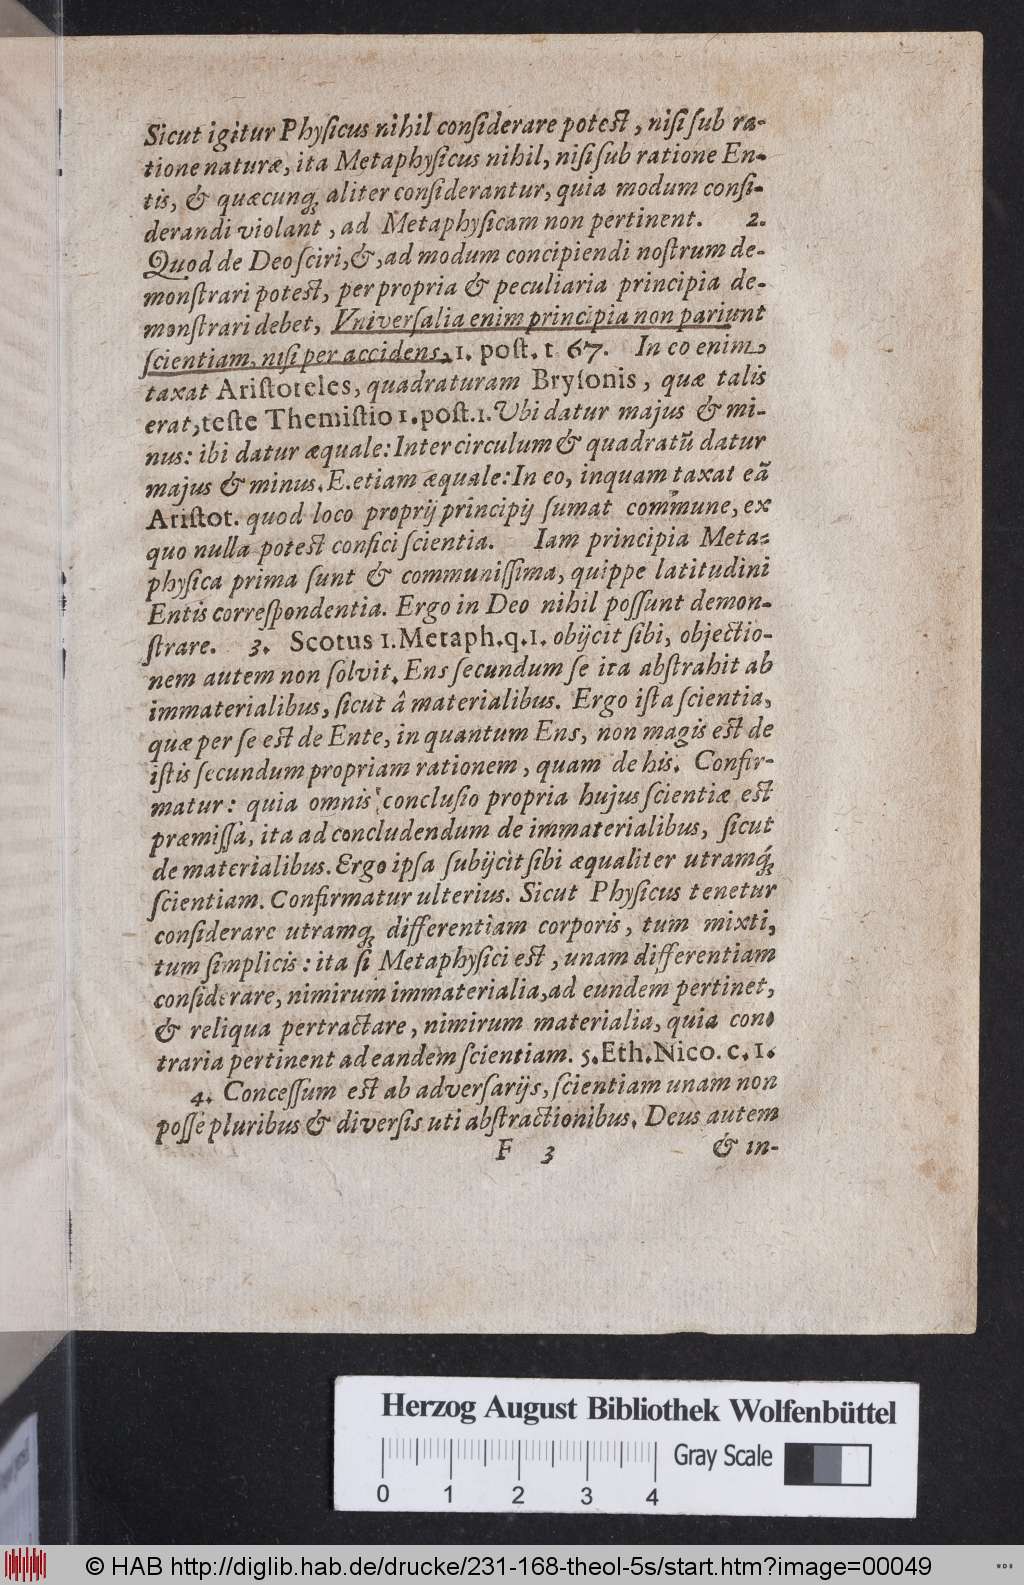 Sicut igitur Physicus nihil considerare potest, nisi sub ra-
tione naturæ, ita Metaphysicus nihil, nisi sub ratione En-
tis, & quæcunq; aliter considerantur, quia modum consi-
derandi violant, ad Metaphysicam non pertinent. 2.
Quod de Deo sciri, &, ad modum concipiendi nostrum de-
monstrari potest, per propria & peculiaria principia de-
monstrari debet, Vniversalia enim principia non pariunt
scientiam, nisi per accidens, 1. post. t 67. In eo enim
taxat Aristoteles, quadraturam Brysonis, quæ talis
erat, teste Themistio 1. post. 1. Ubi datur majus & mi-
nus: ibi datur æquale: Inter circulum & quadratũ datur
majus & minus. E. etiam æquale: In eo, inquam taxat eã
Aristot. quod loco proprij principij sumat commune, ex
quo nulla potest confici scientia. Iam principia Meta-
physica prima sunt & communissima, quippe latitudini
Entis correspondentia. Ergo in Deo nihil possunt demon-
strare. 3. Scotus 1. Metaph. q. 1. obijcit sibi, objectio-
nem autem non solvit. Ens secundum se ita abstrahit ab
immaterialibus, sicut â materialibus. Ergo ista scientia,
quæ per se est de Ente, in quantum Ens, non magis est de
istis secundum propriam rationem, quam de his. Confir-
matur: quia omnis conclusio propria hujus scientiæ est
præmissa, ita ad concludendum de immaterialibus, sicut
de materialibus. Ergo ipsa subijcit sibi æqualiter utramq́;
scientiam. Confirmatur ulterius. Sicut Physicus tenetur
considerare utramq; differentiam corporis, tum mixti,
tum simplicis: ita si Metaphysici est, unam differentiam
considerare, nimirum immaterialia, ad eundem pertinet,
& reliqua pertractare, nimirum materialia, quia con
traria pertinent ad eandem scientiam. 5. Eth. Nico. c. 1.
4. Concessum est ab adversarijs, scientiam unam non
posse pluribus & diversis uti abstractionibus. Deus autem
F 3 & in-
Herzog August Bibliothek Wolfenbüttel
Gray Scale
0 1 2 3 4
© HAB http://diglib.hab.de/drucke/231-168-theol-5s/start.htm?image=00049